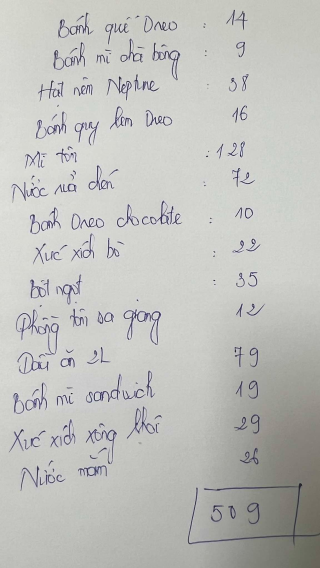 Bánh quế Oreo : 14
Bánh mì chà bông : 9
Hạt nêm Neptune : 38
Bánh quy lam Oreo 16
Mì tôn : 128
Nước rửa chén : 72
Bánh Oreo chocolate : 10
Xúc xích bò : 22
Bột ngọt : 35
Phồng tôn sa giang 12
Dầu ăn 2L 79
Bánh mì sandwich 19
Xúc xích xông khói 29
Nước mắm 26
509